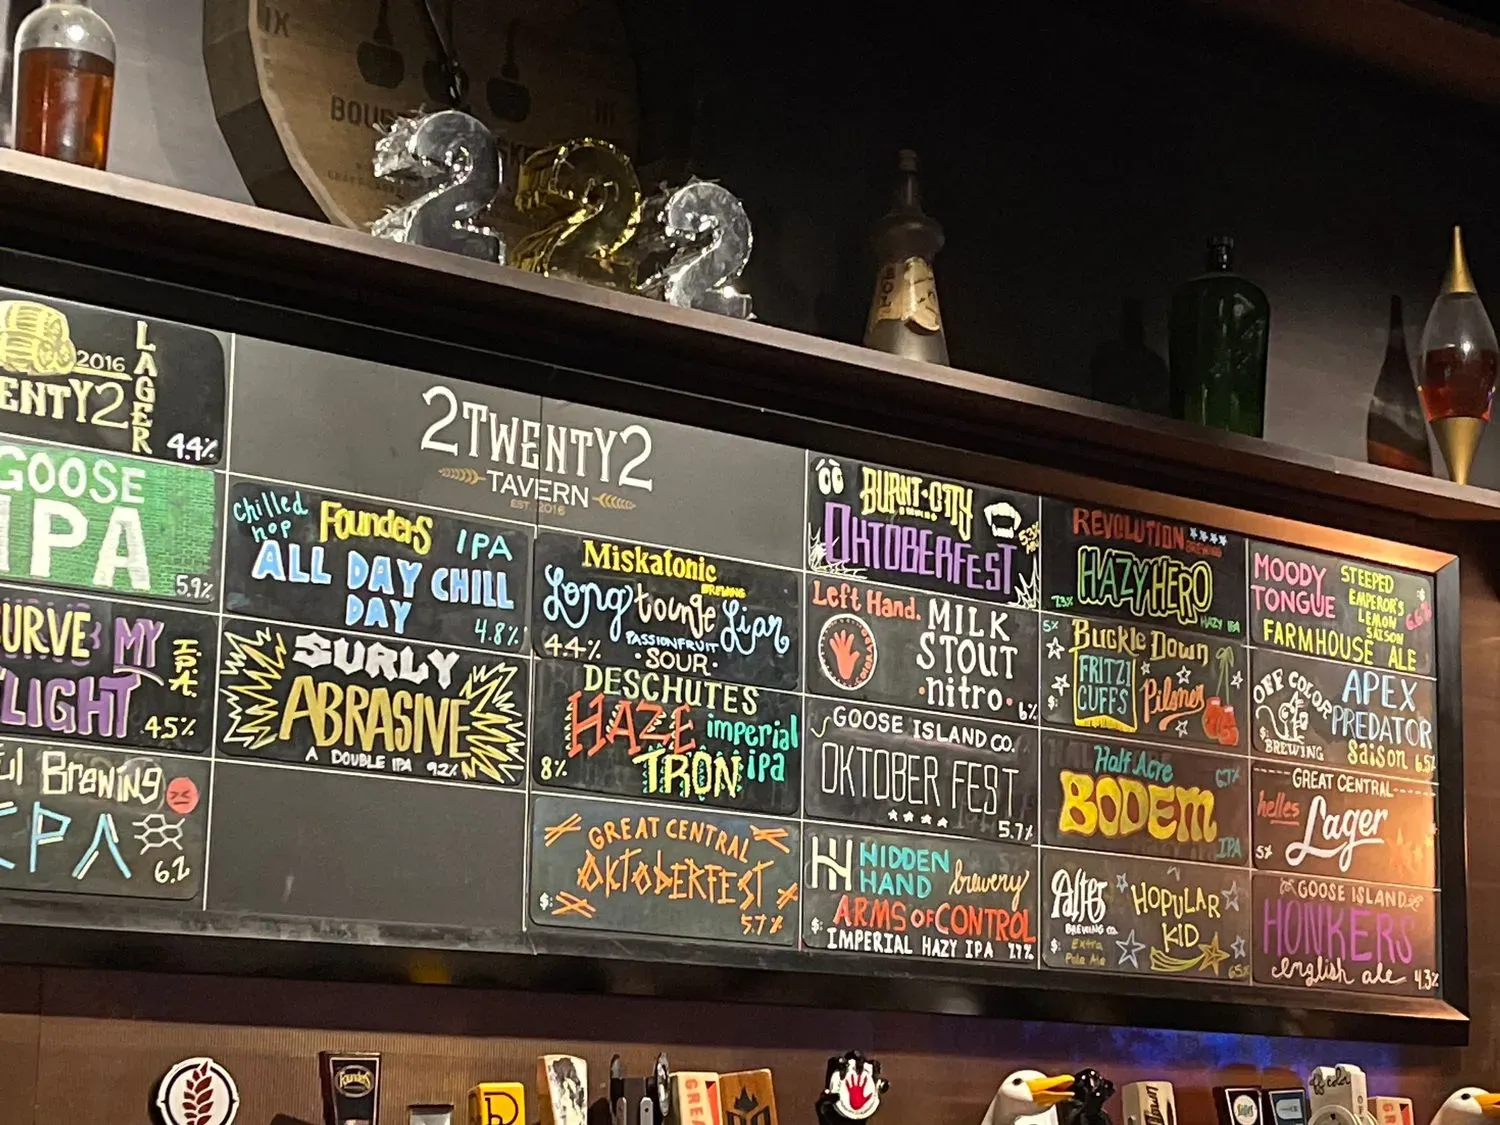 IX
III
BOU
222
2016
LAGER
ENTY2
4.4%
GOOSE
IPA
5.9%
URVE MY
LIGHT
IPA
4.5%
Brewing
EPA
6.2
2TWENTY2
TAVERN
EST. 2016
chilled
hop
Founders
IPA
ALL DAY CHILL
DAY
4.8%
SURLY
ABRASIVE
A DOUBLE IPA 9.2%
Miskatonic
BREWING
Longtounge Liar
4.4%
PASSIONFRUIT
·SOUR·
DESCHUTES
HAZE
TRON
imperial
ipa
8%
GREAT CENTRAL
OKTOBERFEST
$:
5.7%
BURNT·CITY
OKTOBERFEST
Left Hand.
MILK
STOUT
·nitro·
6%
GOOSE ISLAND CO.
OKTOBER FEST
5.7%
HIDDEN
HAND
brewery
$:
ARMS OF CONTROL
IMPERIAL HAZY IPA 7.7%
REVOLUTION
BREWING
HAZY HERO
7.3%
HAZY IPA
5%
Buckle Down
FRITZI
CUFFS
Pilsner
$:
Half Acre
6.7%
BODEM
IPA
Alter
BREWING CO.
HOPULAR
KID
$:
Extra
Pale Ale
6.5%
MOODY
TONGUE
STEEPED
EMPEROR'S
LEMON
SAISON
FARMHOUSE ALE
OFF COLOR
BREWING
$:
APEX
PREDATOR
saison 6.5%
GREAT CENTRAL
helles
Lager
5%
GOOSE ISLAND
HONKERS
english ale 4.3%
Founders